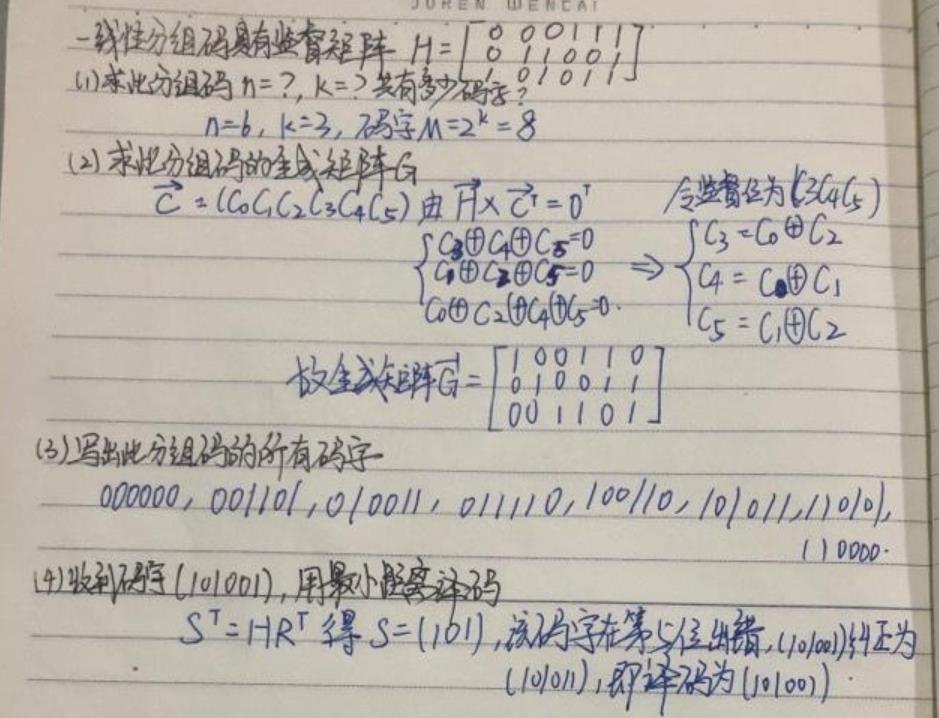 JUREN WENCAI
一线性分组码具有监督矩阵 H=[0 0 0 1 1 1; 0 1 1 0 0 1; 1 0 1 0 1 1]
(1)求此分组码 n=?, k=? 共有多少码字?
n=6, k=3, 码字M=2^k=8
(2)求此分组码的生成矩阵G
C⃗=(C0C1C2C3C4C5) 由 H⃗×C⃗ᵀ=0ᵀ 令监督位为(C3C4C5)
{C3⊕C4⊕C5=0 {C3=C0⊕C2
C1⊕C2⊕C5=0 ⇒ C4=C0⊕C1
C0⊕C2⊕C4⊕C5=0. C5=C1⊕C2
故生成矩阵G⃗=[1 0 0 1 1 0; 0 1 0 0 1 1; 0 0 1 1 0 1]
(3)写出此分组码的所有码字
000000, 001101, 010011, 011110, 100110, 101011, 110101,
110000.
(4)收到码字(101001), 用最小距离译码
Sᵀ=HRᵀ 得 S=(101), 该码字在第5位出错, (101001)纠正为
(101011), 即译码为(101001).